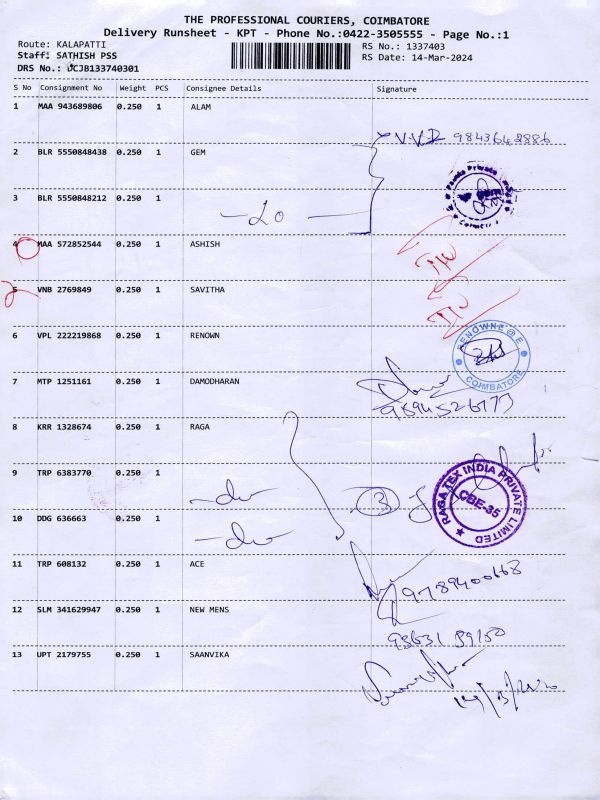 THE PROFESSIONAL COURIERS, COIMBATORE
Delivery Runsheet - KPT - Phone No.:0422-3505555 - Page No.:1
Route: KALAPATTI
Staff: SATHISH PSS
DRS No.: UCJB133740301
RS No.: 1337403
RS Date: 14-Mar-2024
S No Consignment No Weight PCS Consignee Details Signature
1 MAA 943689806 0.250 1 ALAM
V.V.D 9843642886
2 BLR 5550848438 0.250 1 GEM
3 BLR 5550848212 0.250 1
4 MAA 572852544 0.250 1 ASHISH
5 VNB 2769849 0.250 1 SAVITHA
6 VPL 222219868 0.250 1 RENOWN
RENOWNE @ E
COIMBATORE
7 MTP 1251161 0.250 1 DAMODHARAN
8 KRR 1328674 0.250 1 RAGA
9 TRP 6383770 0.250 1
3
RAGATEX INDIA PRIVATE LIMITED
CBE-35
10 DDG 636663 0.250 1
11 TRP 608132 0.250 1 ACE
9789400668
12 SLM 341629947 0.250 1 NEW MENS
13 UPT 2179755 0.250 1 SAANVIKA